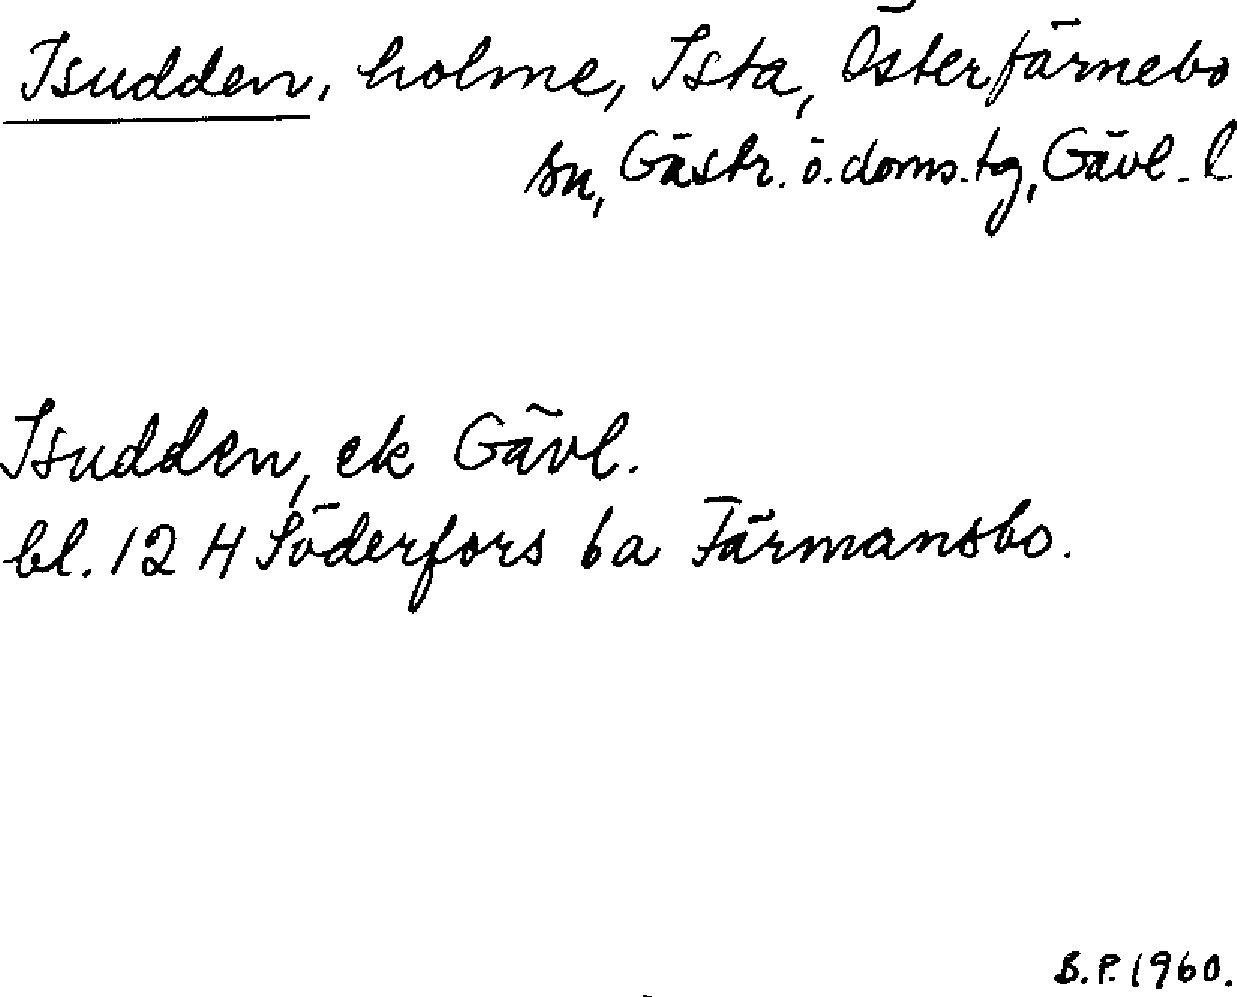 Isudden, holme, Ista, Österfärnebo
sn, Gästr. ö. doms. tg, Gävl. l
Isudden, ek Gävl.
bl. 12 H Söderfors 6a Färmansbo.
B.P. 1960.